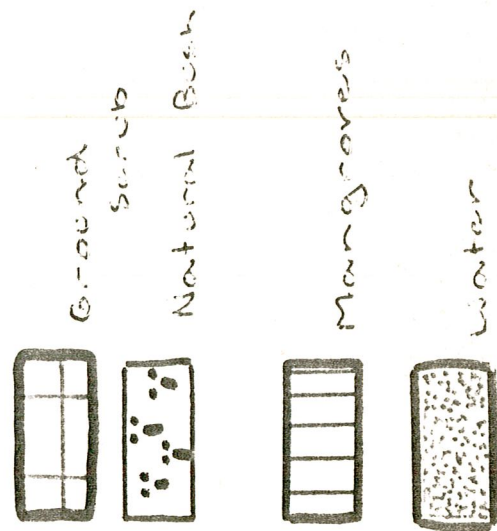 Ground
Scrub
Natural Bush
Mangroves
Water